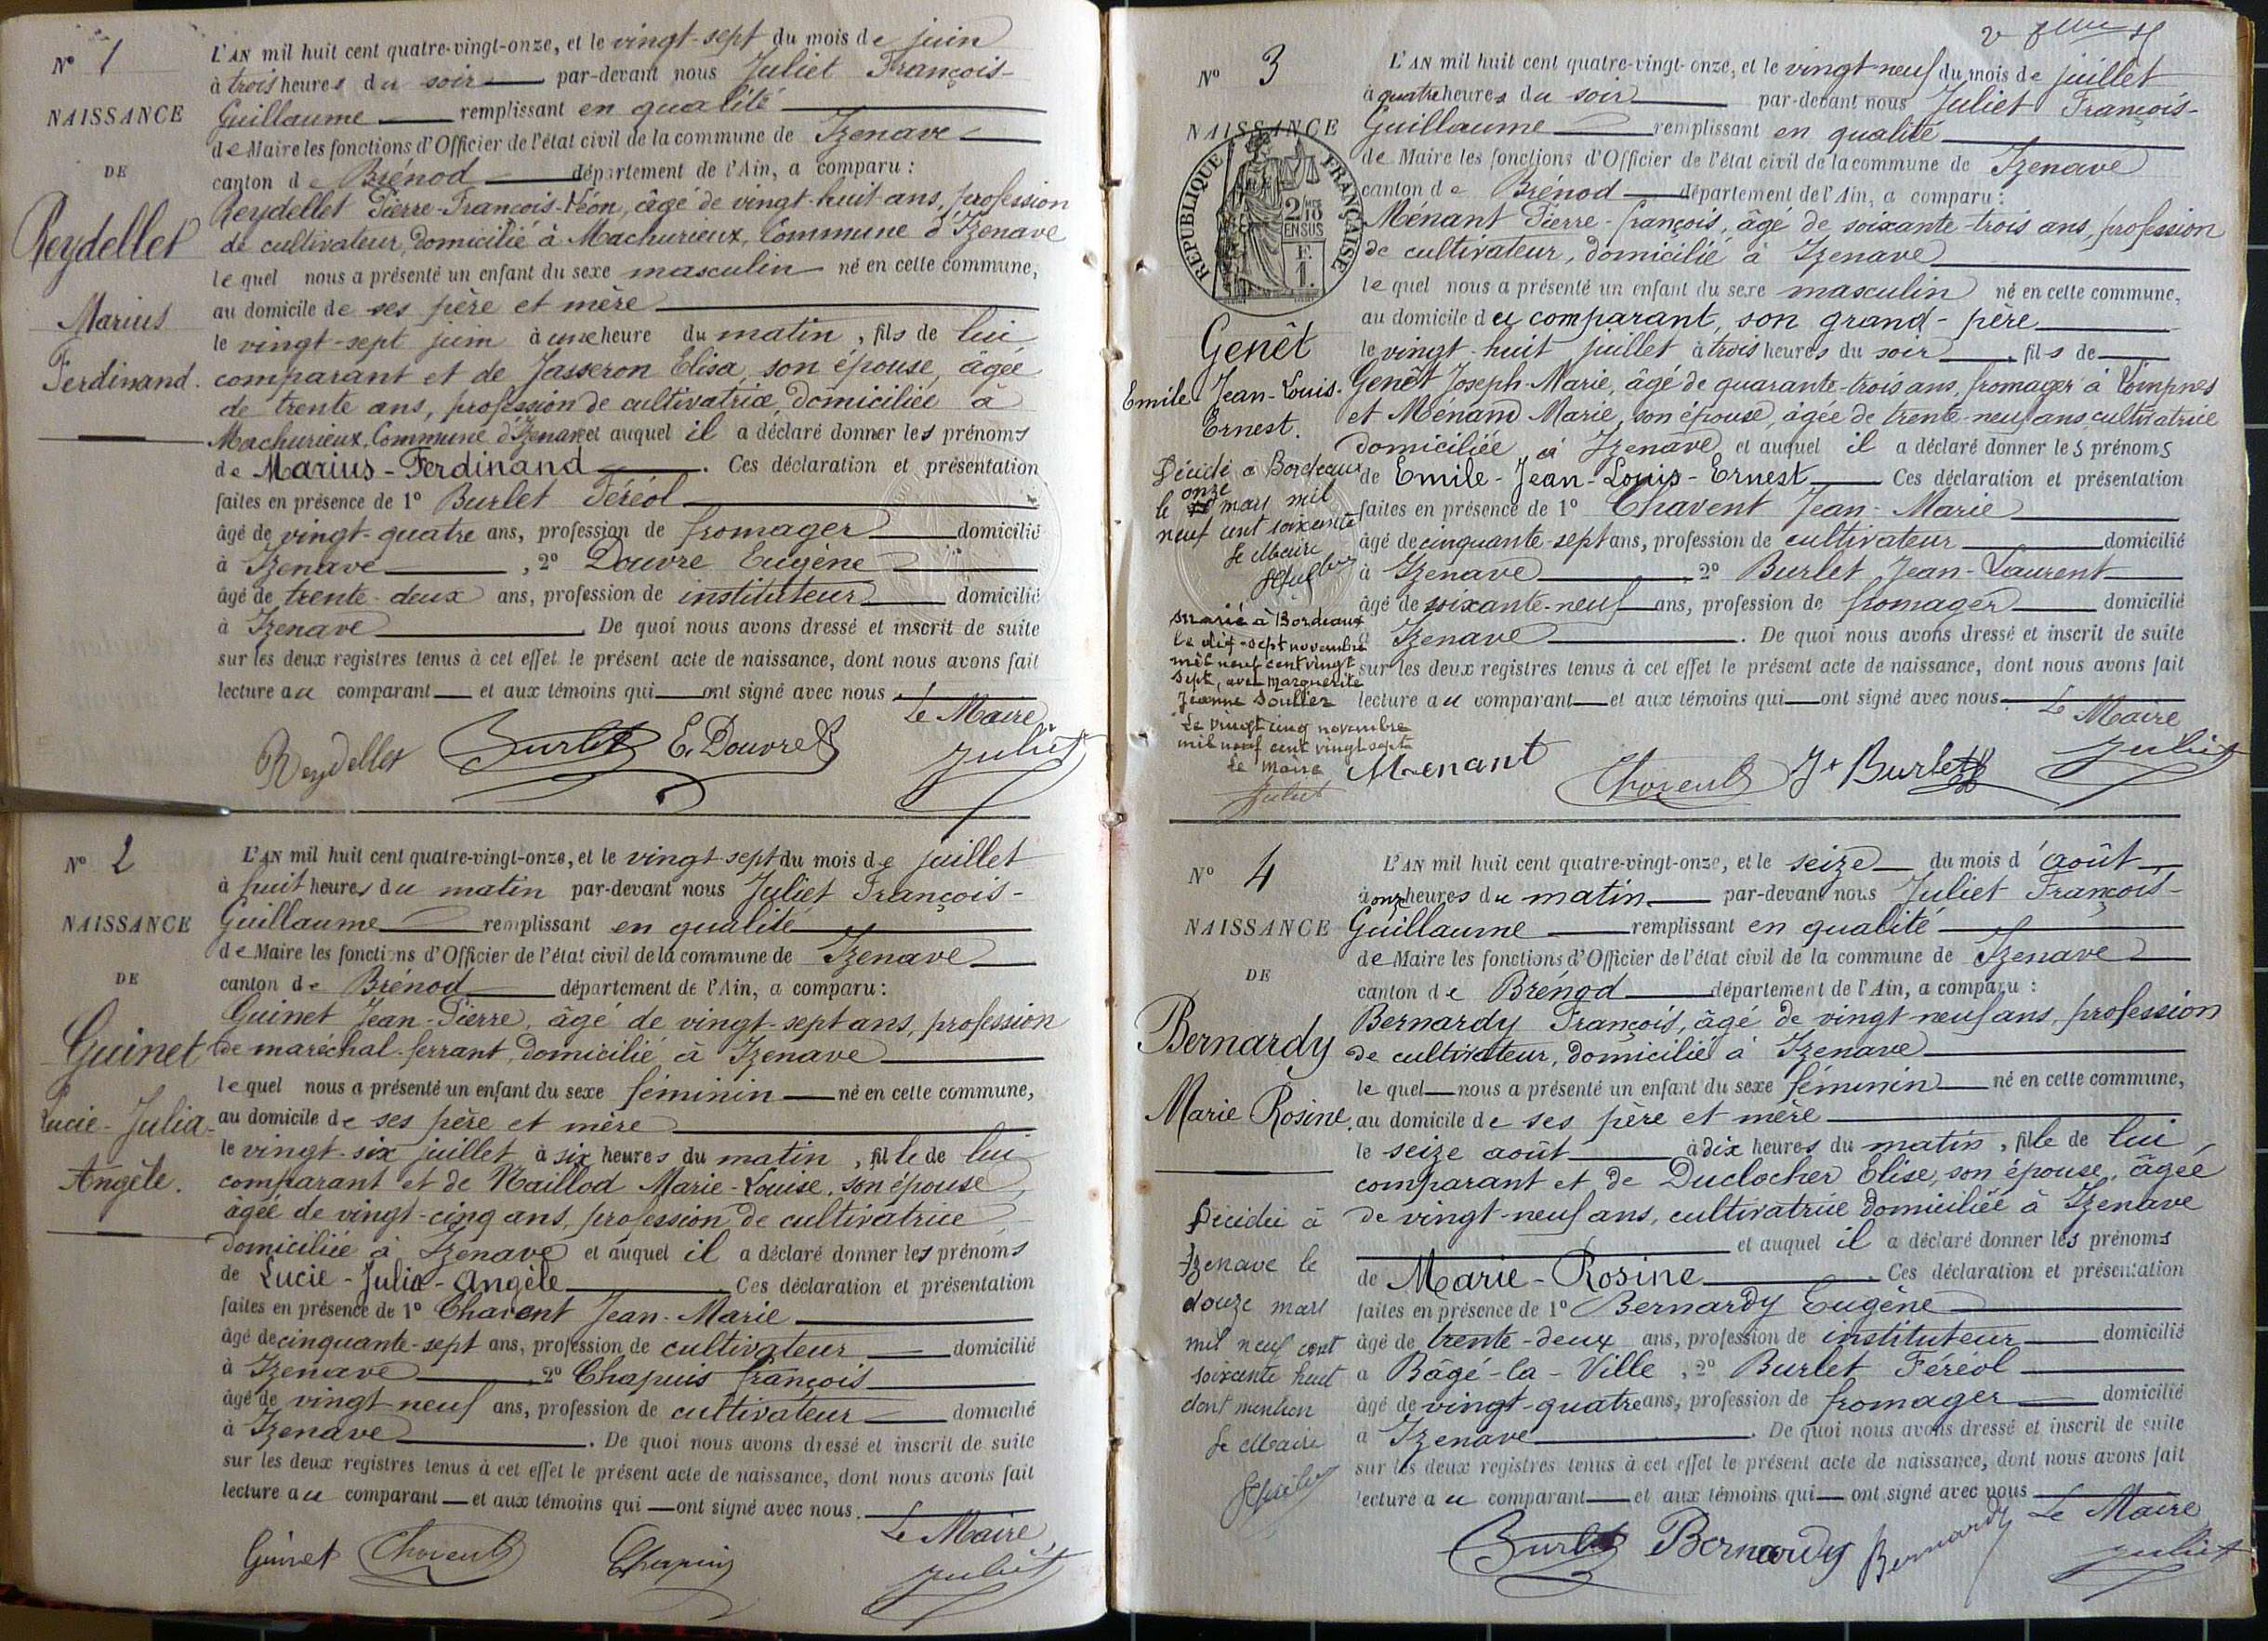 N° 1
NAISSANCE
DE
Reydellet
Marius
Ferdinand.
L'AN mil huit cent quatre-vingt-onze, et le vingt-sept du mois de juin
à trois heures du soir par-devant nous Juliet François-
Guillaume remplissant en qualité
de Maire les fonctions d'Officier de l'état civil de la commune de Izenave
canton de Brénod département de l'Ain, a comparu :
Reydellet Pierre-François-Léon, âgé de vingt-huit ans, profession
de cultivateur, domicilié à Machurieux, Commune d'Izenave
lequel nous a présenté un enfant du sexe masculin né en cette commune,
au domicile de ses père et mère
le vingt-sept juin à une heure du matin, fils de lui
comparant et de Jasseron Elisa, son épouse, âgée
de trente ans, profession de cultivatrice, domiciliée à
Machurieux, Commune d'Izenave et auquel il a déclaré donner les prénoms
de Marius-Ferdinand. Ces déclaration et présentation
faites en présence de 1° Burlet Féréol
âgé de vingt-quatre ans, profession de fromager domicilié
à Izenave, 2° Douvre Eugène
âgé de trente-deux ans, profession de instituteur domicilié
à Izenave. De quoi nous avons dressé et inscrit de suite
sur les deux registres tenus à cet effet le présent acte de naissance, dont nous avons fait
lecture au comparant et aux témoins qui ont signé avec nous.
Le Maire
Reydellet Burlet E. Douvre Juliet
N° 2
NAISSANCE
DE
Guinet
Lucie-Julia-
Angèle.
L'AN mil huit cent quatre-vingt-onze, et le vingt-sept du mois de juillet
à huit heures du matin par-devant nous Juliet François-
Guillaume remplissant en qualité
de Maire les fonctions d'Officier de l'état civil de la commune de Izenave
canton de Brénod département de l'Ain, a comparu :
Guinet Jean-Pierre, âgé de vingt-sept ans, profession
de maréchal-ferrant, domicilié à Izenave
lequel nous a présenté un enfant du sexe féminin né en cette commune,
au domicile de ses père et mère
le vingt-six juillet à six heures du matin, fille de lui
comparant et de Naillod Marie-Louise, son épouse,
âgée de vingt-cinq ans, profession de cultivatrice
domiciliée à Izenave et auquel il a déclaré donner les prénoms
de Lucie-Julia-Angèle Ces déclaration et présentation
faites en présence de 1° Chavent Jean-Marie
âgé de cinquante-sept ans, profession de cultivateur domicilié
à Izenave 2° Chapuis François
âgé de vingt-neuf ans, profession de cultivateur domicilié
à Izenave. De quoi nous avons dressé et inscrit de suite
sur les deux registres tenus à cet effet le présent acte de naissance, dont nous avons fait
lecture au comparant et aux témoins qui ont signé avec nous.
Le Maire,
Guinet Chavent Chapuis Juliet
N° 3
NAISSANCE
REPUBLIQUE FRANÇAISE
2/10
EN SUS
F.
1.
Genêt
Emile Jean-Louis-
Ernest.
Décédé à Bordeaux
onze
le mars mil
neuf cent soixante
Le Maire
marié à Bordeaux
le dix-sept novembre
mil neuf cent vingt
sept, avec Marguerite
Jeanne Soulier
Le vingt cinq novembre
mil neuf cent vingt sept
Le Maire
Juliet
L'AN mil huit cent quatre-vingt-onze, et le vingt neuf du mois de juillet
à quatre heures du soir par-devant nous Juliet François-
Guillaume remplissant en qualité
de Maire les fonctions d'Officier de l'état civil de la commune de Izenave
canton de Brénod département de l'Ain, a comparu :
Ménant Pierre-françois, âgé de soixante-trois ans, profession
de cultivateur, domicilié à Izenave
lequel nous a présenté un enfant du sexe masculin né en cette commune,
au domicile du comparant, son grand-père
le vingt-huit juillet à trois heures du soir, fils de
Genêt Joseph-Marie, âgé de quarante-trois ans, fromager à Lompnes
et Ménand Marie, son épouse, âgée de trente-neuf ans, cultivatrice
domiciliée à Izenave et auquel il a déclaré donner les prénoms
de Emile-Jean-Louis-Ernest Ces déclaration et présentation
faites en présence de 1° Chavent Jean-Marie
âgé de cinquante-sept ans, profession de cultivateur domicilié
à Izenave 2° Burlet Jean-Laurent
âgé de soixante-neuf ans, profession de fromager domicilié
à Izenave. De quoi nous avons dressé et inscrit de suite
sur les deux registres tenus à cet effet le présent acte de naissance, dont nous avons fait
lecture au comparant et aux témoins qui ont signé avec nous.
Le Maire
Menant Chavent Jt Burlet Juliet
N° 4
NAISSANCE
DE
Bernardy
Marie Rosine.
Décédée à
Izenave le
douze mars
mil neuf cent
soixante huit
dont mention
Le Maire
L'AN mil huit cent quatre-vingt-onze, et le seize du mois d'août
à onze heures du matin par-devant nous Juliet François-
Guillaume remplissant en qualité
de Maire les fonctions d'Officier de l'état civil de la commune de Izenave
canton de Brénod département de l'Ain, a comparu :
Bernardy François, âgé de vingt neuf ans, profession
de cultivateur, domicilié à Izenave
lequel nous a présenté un enfant du sexe féminin né en cette commune,
au domicile de ses père et mère
le seize août à dix heures du matin, fille de lui
comparant et de Duclocher Elise, son épouse, âgée
de vingt-neuf ans, cultivatrice domiciliée à Izenave
et auquel il a déclaré donner les prénoms
de Marie-Rosine. Ces déclaration et présentation
faites en présence de 1° Bernardy Eugène
âgé de trente-deux ans, profession de instituteur domicilié
à Bâgé-la-Ville, 2° Burlet Féréol
âgé de vingt-quatre ans, profession de fromager domicilié
à Izenave. De quoi nous avons dressé et inscrit de suite
sur les deux registres tenus à cet effet le présent acte de naissance, dont nous avons fait
lecture au comparant et aux témoins qui ont signé avec nous
Le Maire
Burlet Bernardy Bernardy Juliet